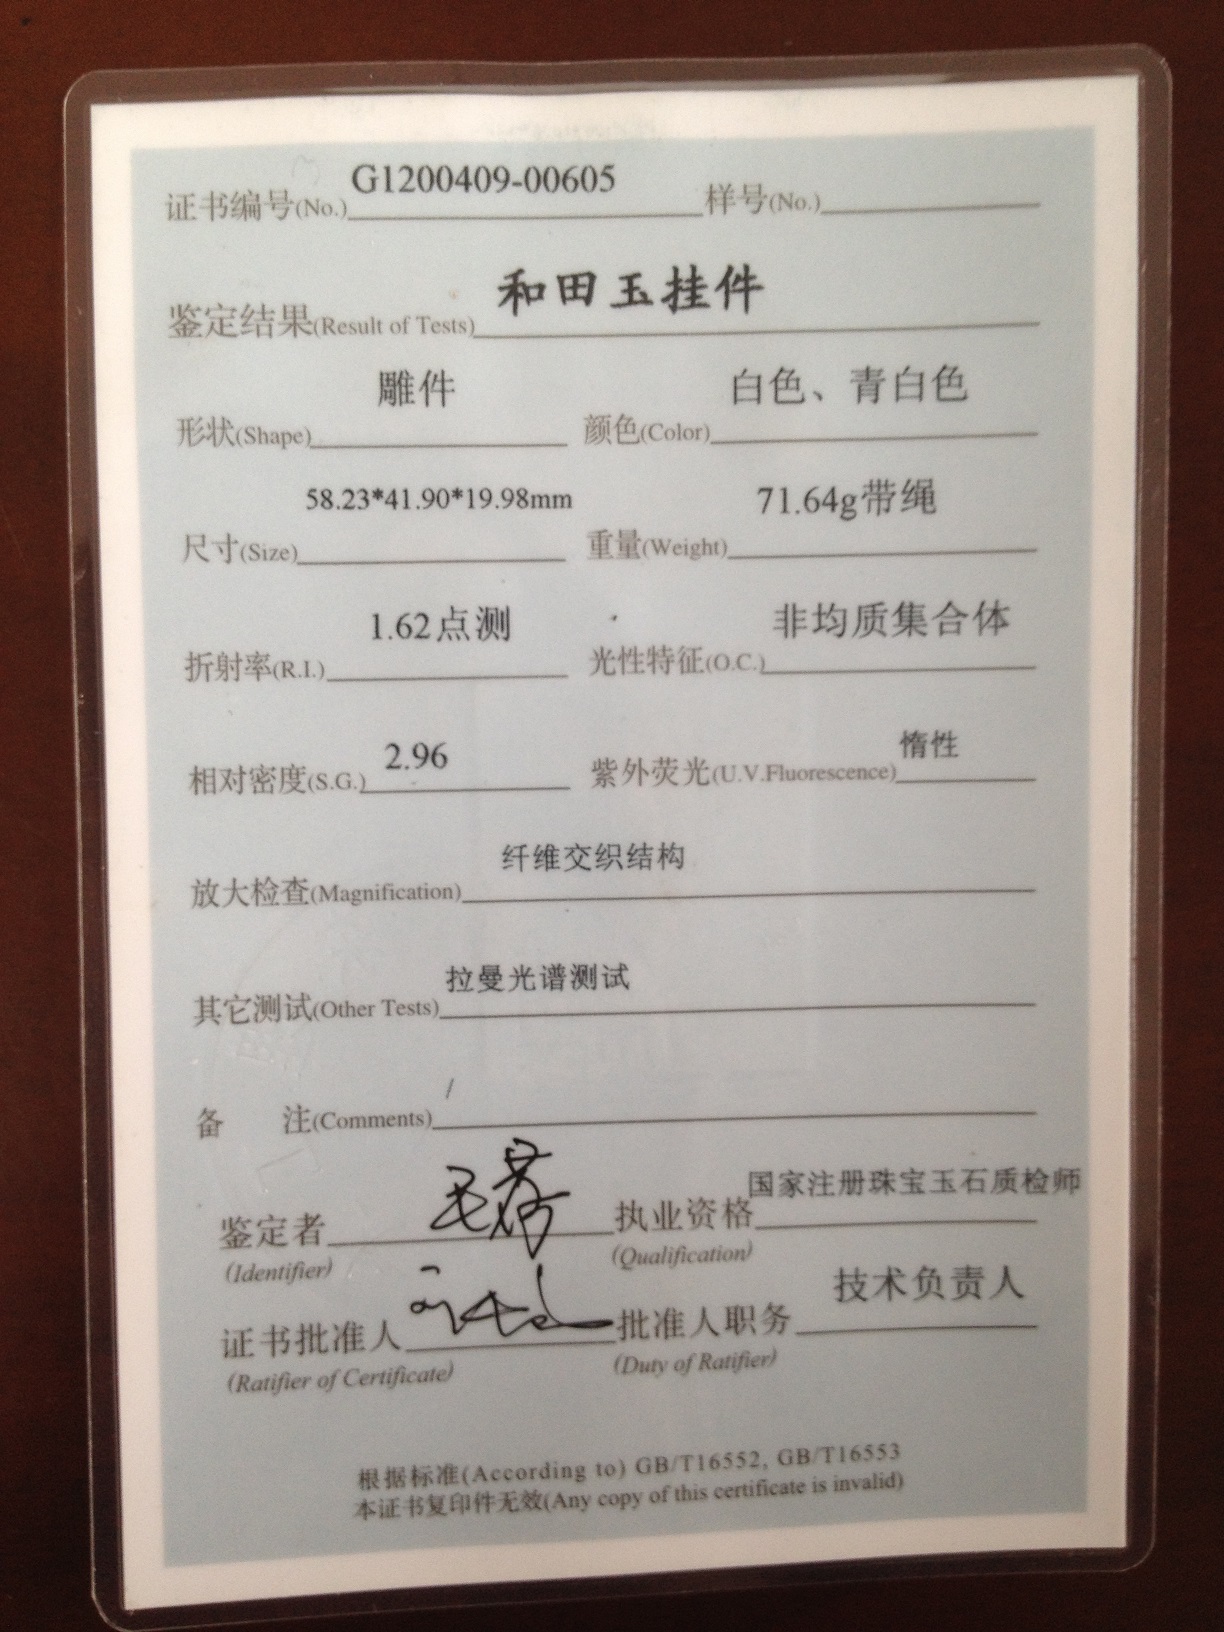 证书编号(No.) G1200409-00605 样号(No.)
鉴定结果(Result of Tests) 和田玉挂件
形状(Shape) 雕件 颜色(Color) 白色、青白色
尺寸(Size) 58.23*41.90*19.98mm 重量(Weight) 71.64g带绳
折射率(R.I.) 1.62点测 光性特征(O.C.) 非均质集合体
相对密度(S.G.) 2.96 紫外荧光(U.V.Fluorescence) 惰性
放大检查(Magnification) 纤维交织结构
其它测试(Other Tests) 拉曼光谱测试
备 注(Comments) /
鉴定者 执业资格 国家注册珠宝玉石质检师
(Identifier) (Qualification)
证书批准人 批准人职务 技术负责人
(Ratifier of Certificate) (Duty of Ratifier)
根据标准(According to) GB/T16552, GB/T16553
本证书复印件无效(Any copy of this certificate is invalid)